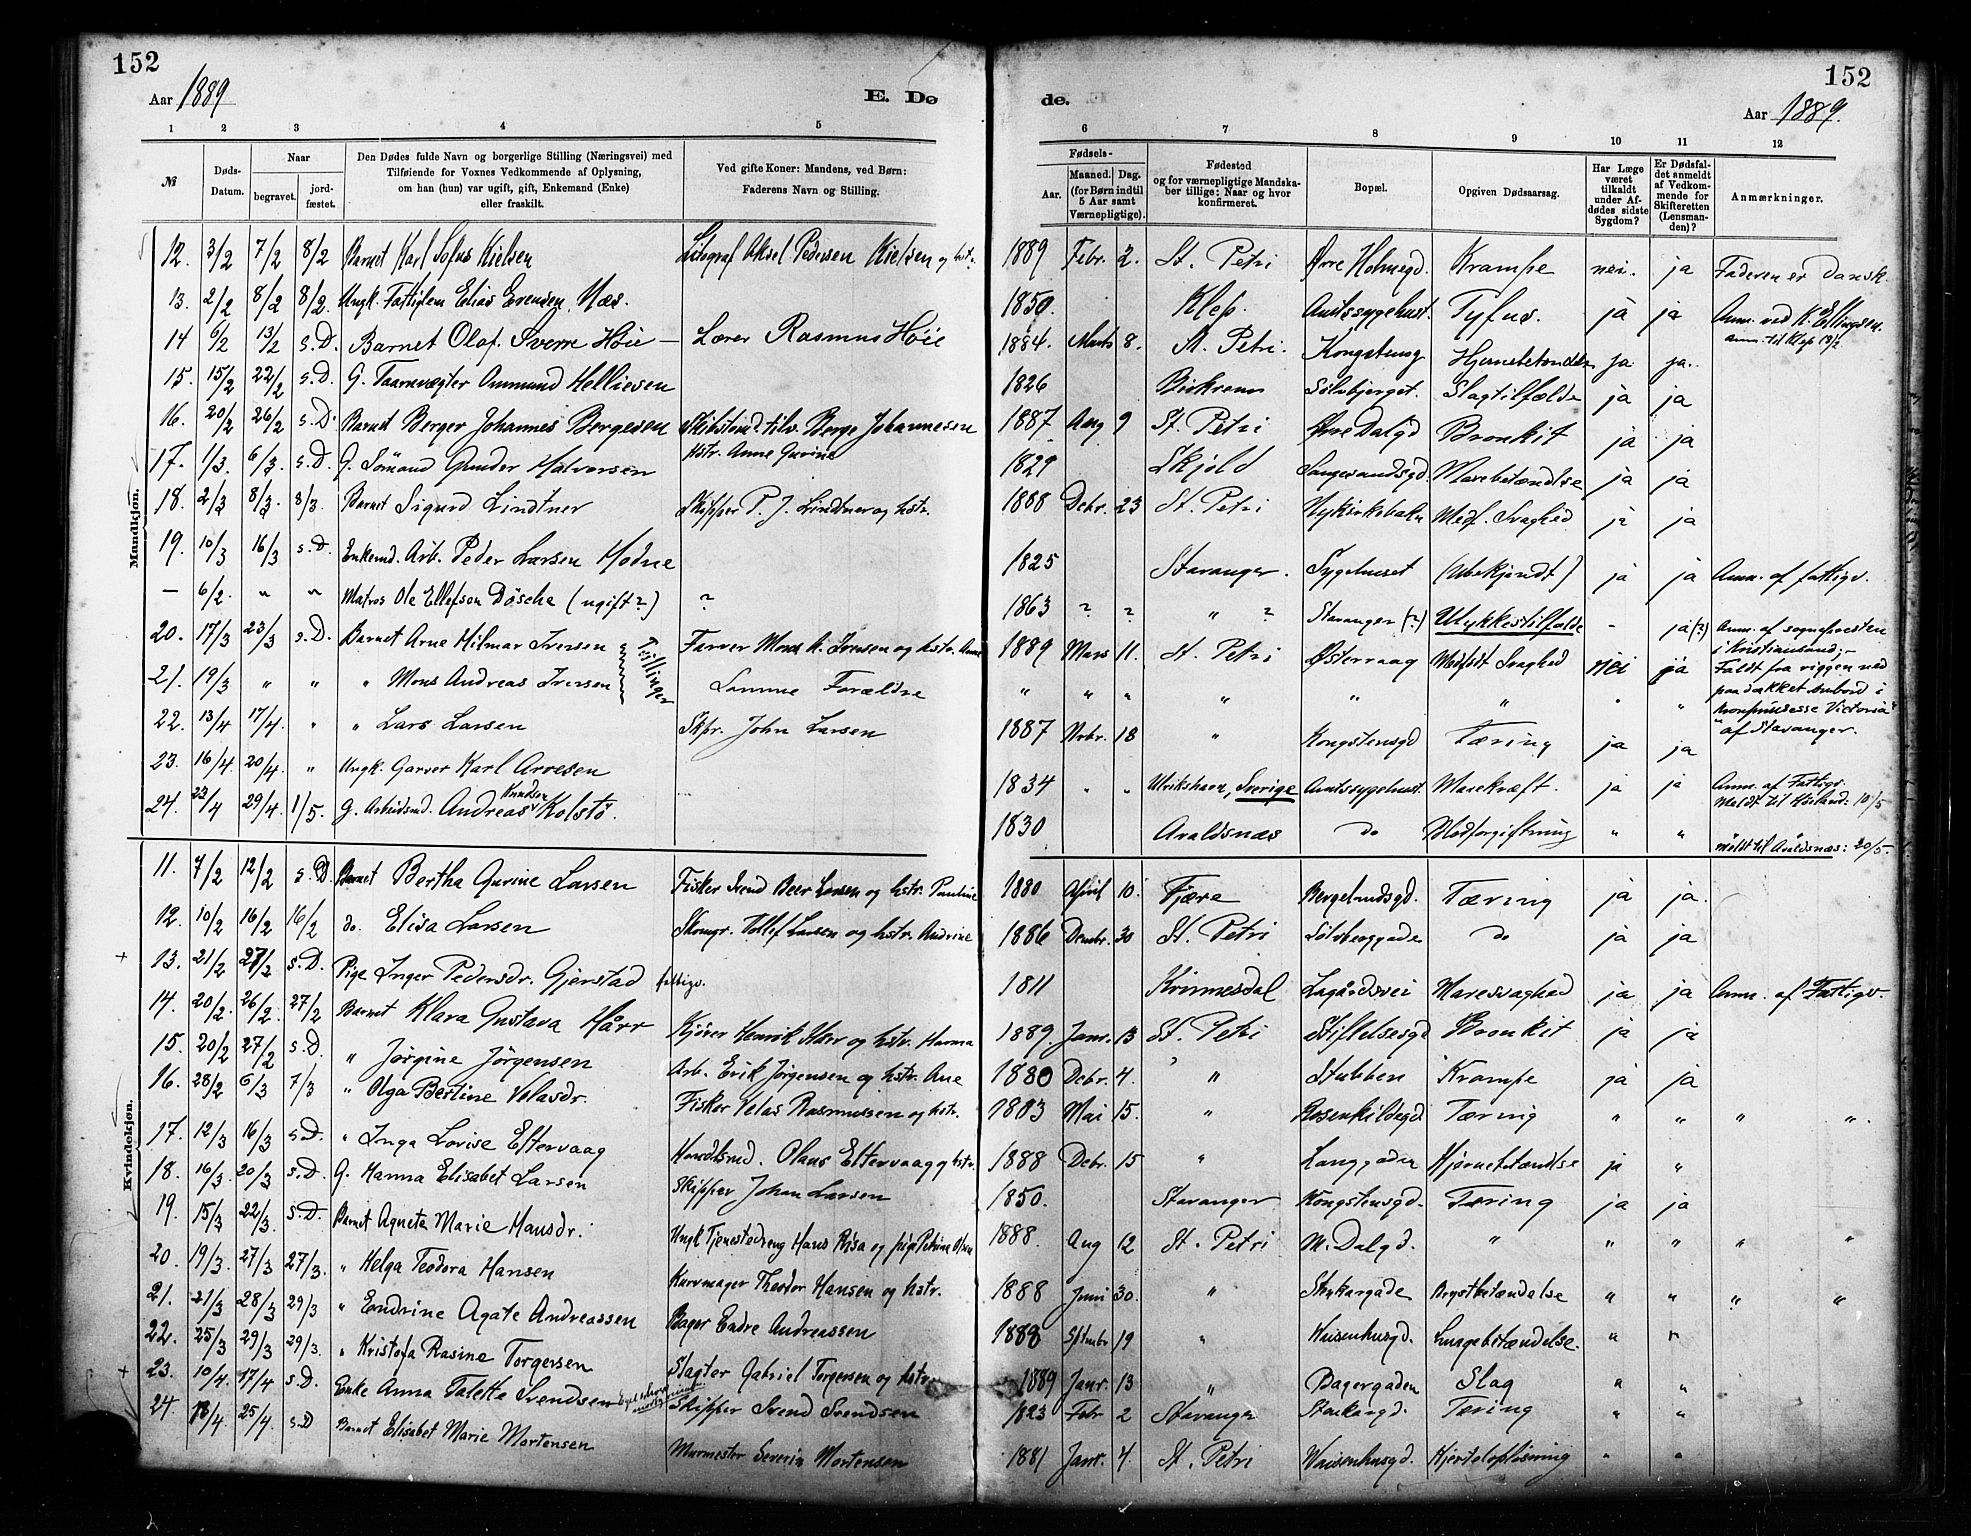 152
Aar 1889
E. Dø
1 2 3 4 5
№
Døds-Datum.
Naar
begravet.
jord-fæstet.
Den Dødes fulde Navn og borgerlige Stilling (Næringsvei) med
Tilføiende for Voxnes Vedkommende af Oplysning,
om han (hun) var ugift, gift, Enkemand (Enke)
eller fraskilt.
Ved gifte Koner: Mandens, ved Børn:
Faderens Navn og Stilling.
Mandkjøn.
12. 3/2 7/2 8/2 Barnet Karl Sofus Kielsen Litograf Aksel Pedersen Kielsen og hstr.
13. 2/2 8/2 8/2. Ungk. Fattiglem Elias Evensen Næs.
14 6/2 13/2 s.D. Barnet Olaf Sverre Höie — Lærer Rasmus Höie
15. 15/2 22/2 s.D. G. Taarnvægter Ommund Helliesen
16. 20/2 26/2 s.D. Barnet Berger Johannes Bergesen Skibstimd. tilv. Berge Johannesen
hstr. Anne Gurine
17. 1/3. 6/3. s.D. G. Sömand Gunder Halvorsen
18. 2/3 8/3. 8/3. Barnet Sigurd Lindtner Skipper P. J. Lindtner og hstr.
19. 10/3 16/3 s.D. Enkemd. Arb. Peder Larsen Hodne
— 6/2. " " Matros Ole Ellefsen Dösche (ugift?) ?
20. 17/3 23/3 s.D. Barnet Arne Hilmar Iversen Farver Mons A. Iversen og hstr. Anne
Tvillinger
21. 19/3 " " " Mons Andreas Iversen Samme Forældre
22. 13/4 17/4. " " Lars Larsen Skpr. John Larsen
23. 16/4. 20/4. " Ungk. Garver Karl Arvesen
24. 23/4 29/4 1/5. G. Arbeidsmd. Andreas Knudsen Kolstö
Kvindekjøn.
11. 7/2 12/2 s.D. Barnet Bertha Gurine Larsen Fisker Svend Beer Larsen og hstr. Pauline
12. 10/2 16/2 16/2 do. Elisa Larsen Skomgr. Tollef Larsen og hstr. Andrine
13. 21/2 27/2 s.D. Pige Inger Pedersdr. Gjerstad fattigv.
14. 20/2. 26/2. 27/2 Barnet Klara Gustava Hårr
15. 20/2 27/2 s.D. " Jörgine Jörgensen Arb. Erik Jörgensen og hstr. Ane
16. 28/2 6/3 7/3 " Olga Bertine Velasdr. Fisker Velas Rasmussen og hstr.
17. 12/3 16/3 s.D. " Inga Lovise Eftervaag Handelsmd. Olaus Eftervaag og hstr.
18. 16/3. 20/3 s.D G. Hanna Elisabet Larsen Skipper Johan Larsen
19. 15/3 22/3. s.D. Barnet Agnete Marie Hansdr. Ungk Tjenestedreng Hans Riisa og pige Petrine Olsen
20. 19/3. 27/3 27/3. " Helga Teodora Hansen Kurvmager Theodor Hansen og hstr.
21. 21/3 28/3 29/3 " Endrine Agate Andreassen Bager Endre Andreassen
22. 25/3 29/3 29/3. " Kristofa Rasine Torgersen Slagter Gabriel Torgersen og hstr.
23. 10/4. 17/4 s.D. Enke Anna Talette Svendsen Skipper Svend Svendsen
24. 18/4. 25/4. s.D Barnet Elisabet Marie Mortensen Murmester Severin Mortensen
152
de.
Aar 1889.
6 7 8 9 10 11 12
Fødsels-
Aar.
Maaned. Dag.
(for Børn indtil
5 Aar samt
Værnepligtige).
Fødested
og for værnepligtige Mandska-
ber tillige: Naar og hvor
konfirmeret.
Bopæl.
Opgiven Dødsaarsag.
Har Læge
været
tilkaldt
under Af-
dødes sidste
Sygdom?
Er Dødsfal-
det anmeldt
af Vedkom-
mende for
Skifteretten
(Lensman-
den)?
Anmærkninger.
1889 Febr. 2. St. Petri Övre Holmegd. Krampe nei. ja Faderen er Dansk.
1850. Klep. Amtssygehust. Tyfus. ja ja Anm. ved K. Ellingsen.
anm. til Klep 13/2
1884. Marts 8. St. Petri. Kongsteng Hjernebetændelse ja ja.
1826 Birkrem Sölvbjerget. Slagtilfælde ja ja
1887 Aug 9 St. Petri Övre Dalgd Bronkit ja ja
1829 Skjold Lavge
 Mavebetændelse ja ja
1888 Debr. 23 St. Petri Nykirkebakn Medf. Svaghed ja ja
1825 Stavanger. Sygehuset (Ubekjendt) ja ja Anm. af fattigv.
1863 ? ? " ? Stavanger (?) Ulykkestilfælde - ja(?) Anm. af sognepresten
i Kristiansand; -
Faldt fra riggen ned
paa dækket ombord i
"Kronprinsesse Victoria"
af Stavanger.
1889 Mars 11. St. Petri Østervaag Medfödt Svaghed nei ja
" " " " " " " "
1887 Nvbr. 18 " Kongstensgd Tæring ja ja
1834 " " Ulrikshavn, Sverige Amtssygehust. Mavekræft. ja ja Anm. af Fattigv.
1830 Avaldsnæs do Blodforgiftning " " meldt til Avaldsnæs: 20/5.
1880 April 10. Fjære Bergelandsgd. Tæring ja ja.
1886 Decmbr. 30 St. Petri Sölvberggade do ja ja
1811 Kvinnesdal Lagårdsvei Mavesvaghed ja ja Anm. af Fattigv.
1889. Janr. 13 St. Petri Stiftelsesgd Bronkit ja ja
1880 Debr. 4. " Stubben Krampe ja ja
1883 Mai 15. " Rosenkildegd Tæring " " " "
1888 Debr. 15 " Langgaden Hjernebetændelse ja "
1850. Stavanger Kongstensgd. Tæring ja ja
1888 Aug 12 St. Petri N. Dalgd. " " " " "
1888 Juni 30. " Stenkargade Brystbetændelse " " " "
1888 Sptmbr 19 " Waisenhusgd. Lungebetændelse. " "
1889 Janr. 13 " Bagergaden Slag " "
1823 Febr 2 Stavanger Stenkargd. Tæring " "
1881 Janr. 4. St. Petri Waisenhusgd. Hjerteloplösning " "